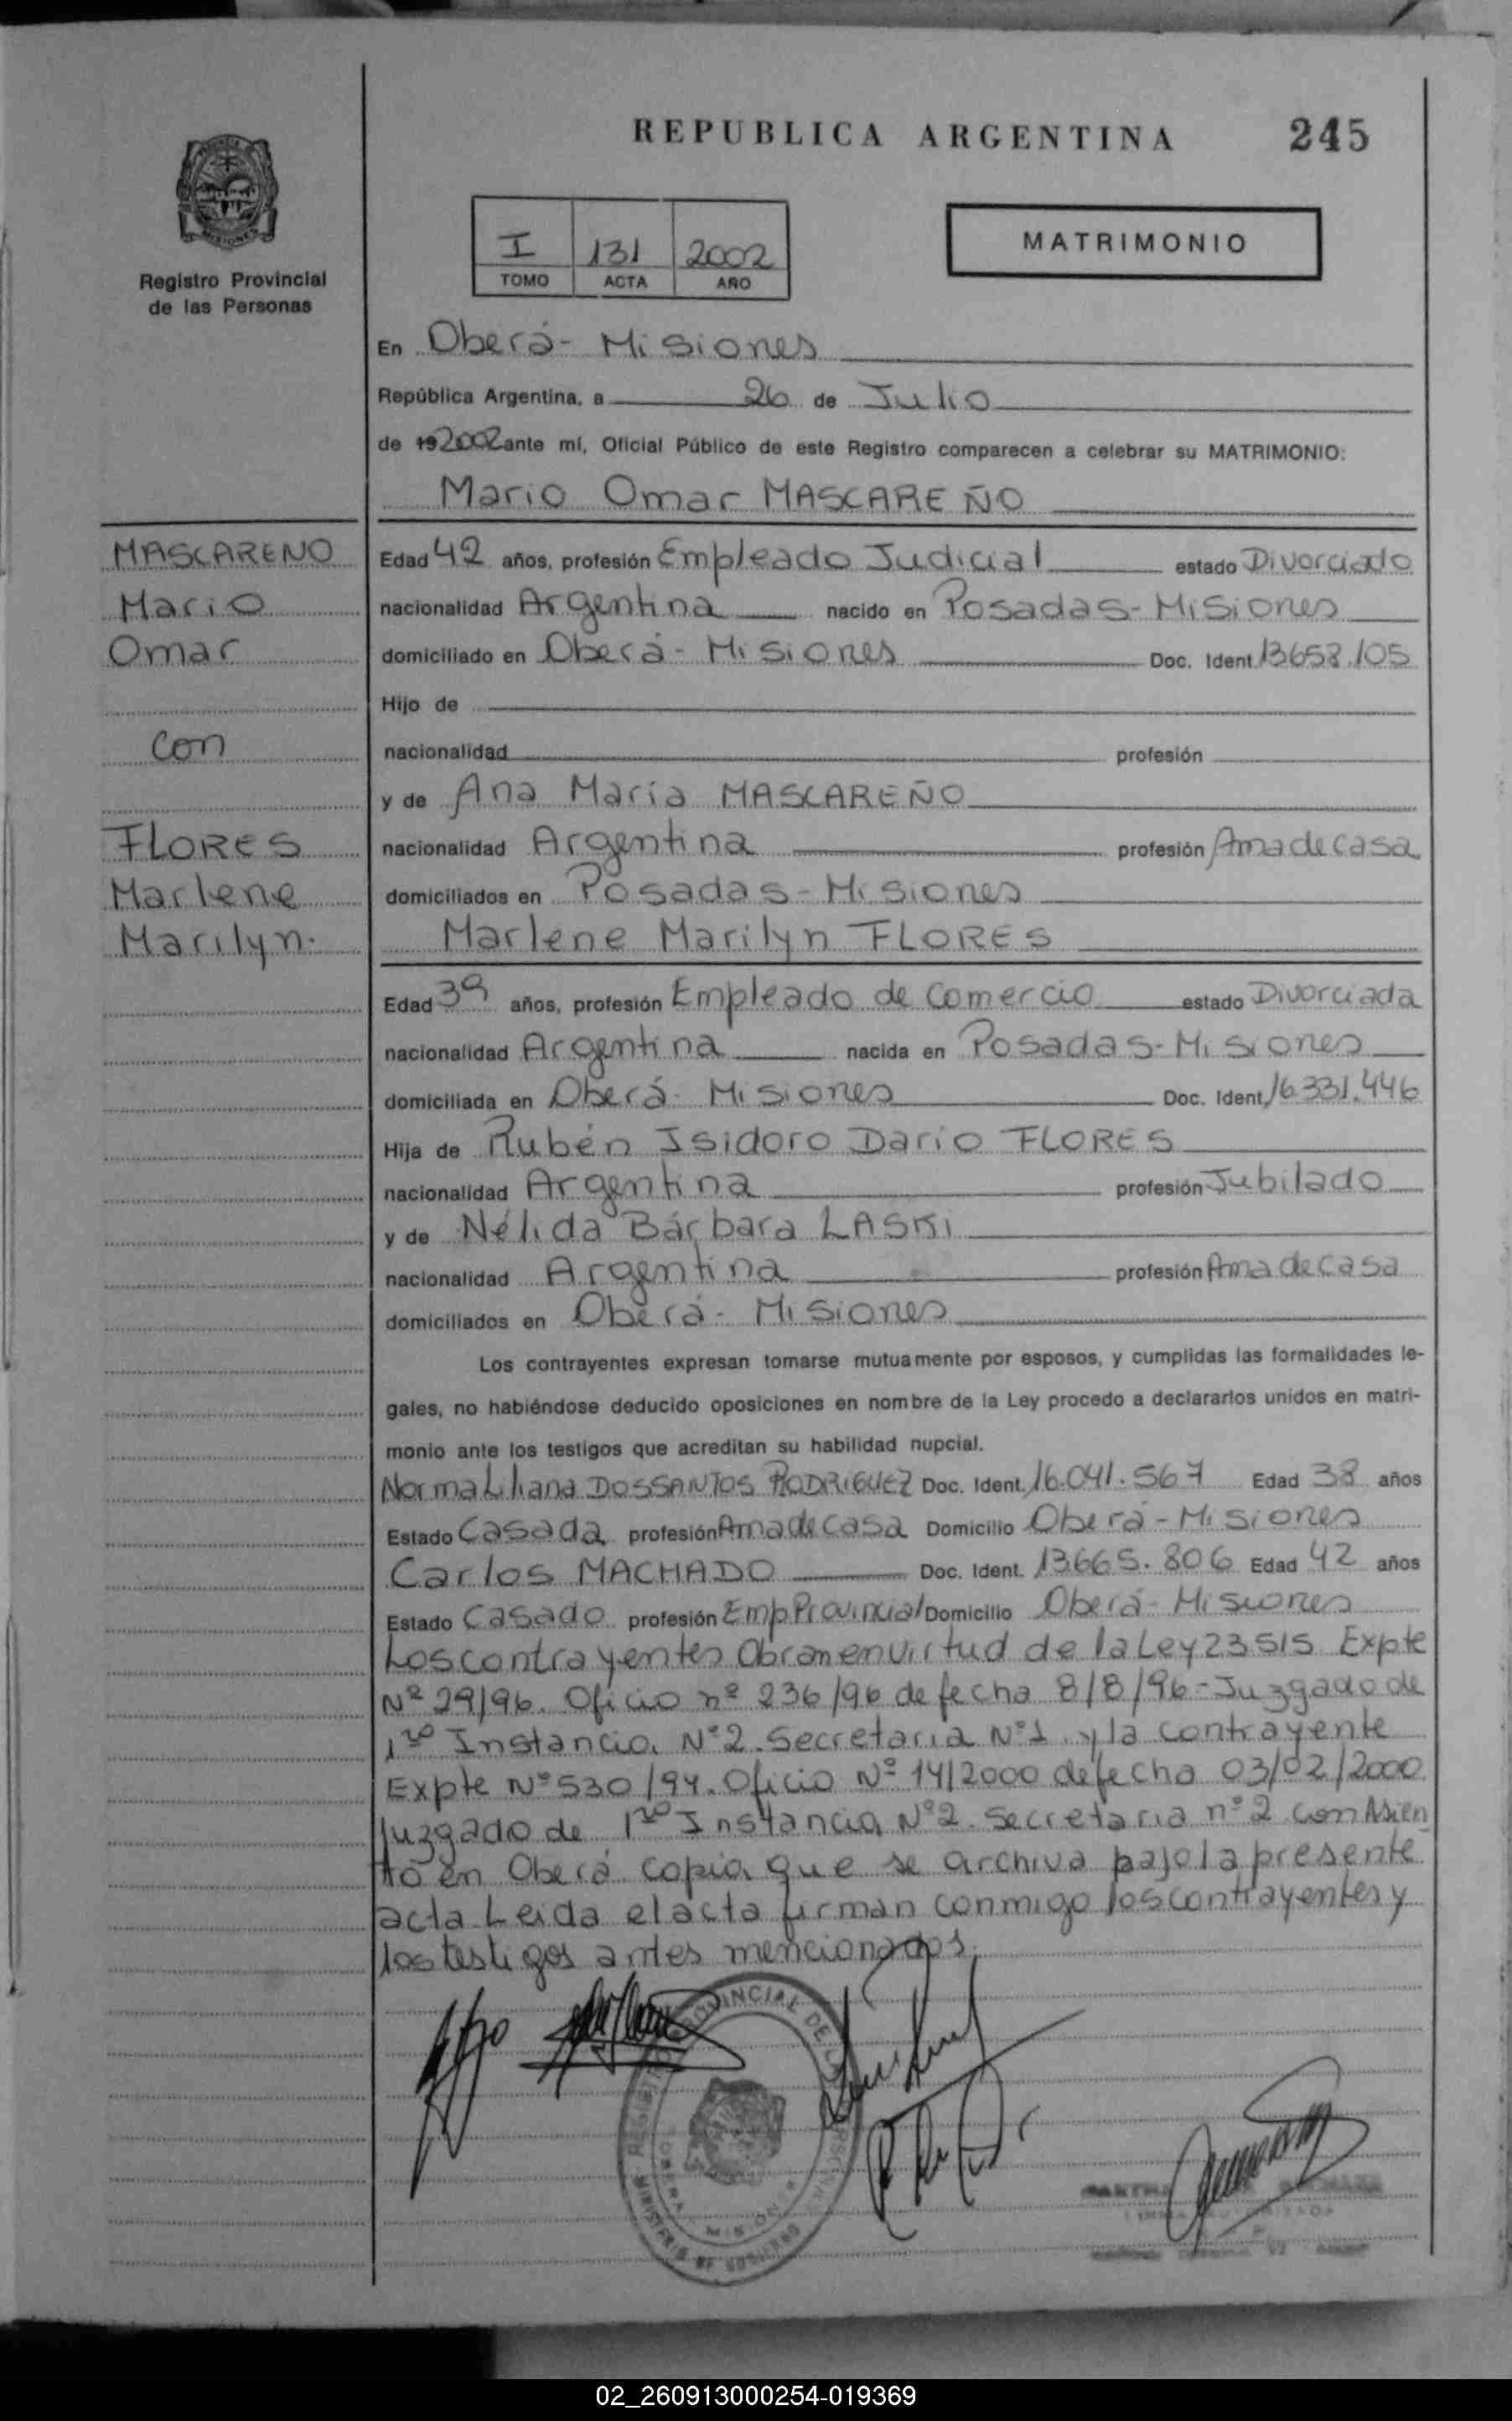 REPUBLICA ARGENTINA 245
MISIONES
Registro Provincial
de las Personas
I 131 2002
TOMO ACTA AÑO
MATRIMONIO
En Oberá - Misiones
República Argentina, a 26 de Julio
de 192002 ante mí, Oficial Público de este Registro comparecen a celebrar su MATRIMONIO:
Mario Omar MASCAREÑO
MASCARENO
Mario
Omar
con
FLORES
Marlene
Marilyn.
Edad 42 años, profesión Empleado Judicial estado Divorciado
nacionalidad Argentina nacido en Posadas - Misiones
domiciliado en Oberá - Misiones Doc. Ident. 13658.105
Hijo de
nacionalidad profesión
y de Ana María MASCAREÑO
nacionalidad Argentina profesión Ama de casa
domiciliados en Posadas - Misiones
Marlene Marilyn FLORES
Edad 39 años, profesión Empleado de Comercio estado Divorciada
nacionalidad Argentina nacida en Posadas - Misiones
domiciliada en Oberá - Misiones Doc. Ident. 16.331.446
Hija de Rubén Isidoro Dario FLORES
nacionalidad Argentina profesión Jubilado
y de Nélida Bárbara LASKI
nacionalidad Argentina profesión Ama de casa
domiciliados en Oberá - Misiones
Los contrayentes expresan tomarse mutuamente por esposos, y cumplidas las formalidades le-
gales, no habiéndose deducido oposiciones en nombre de la Ley procedo a declararlos unidos en matri-
monio ante los testigos que acreditan su habilidad nupcial.
Norma Liliana DOSSANTOS RODRIGUEZ Doc. Ident. 16.041.567 Edad 38 años
Estado Casada profesión Ama de casa Domicilio Oberá - Misiones
Carlos MACHADO Doc. Ident. 13.665.806 Edad 42 años
Estado Casado profesión Emp Provincial Domicilio Oberá - Misiones
Los contrayentes Obran en virtud de la Ley 23515 Expte
Nº 29/96. Oficio nº 236/96 de fecha 8/8/96 - Juzgado de
1ra Instancia Nº 2. Secretaria Nº 1 y la contrayente
Expte Nº 530/94. Oficio Nº 14/2000 de fecha 03/02/2000
Juzgado de 1ra Instancia Nº 2. Secretaria nº 2 con Asien
to en Oberá copia que se archiva bajo la presente
acta. Leida el acta firman conmigo los contrayentes y
los testigos antes mencionados.
MINISTERIO DE GOBIERNO
02_260913000254-019369